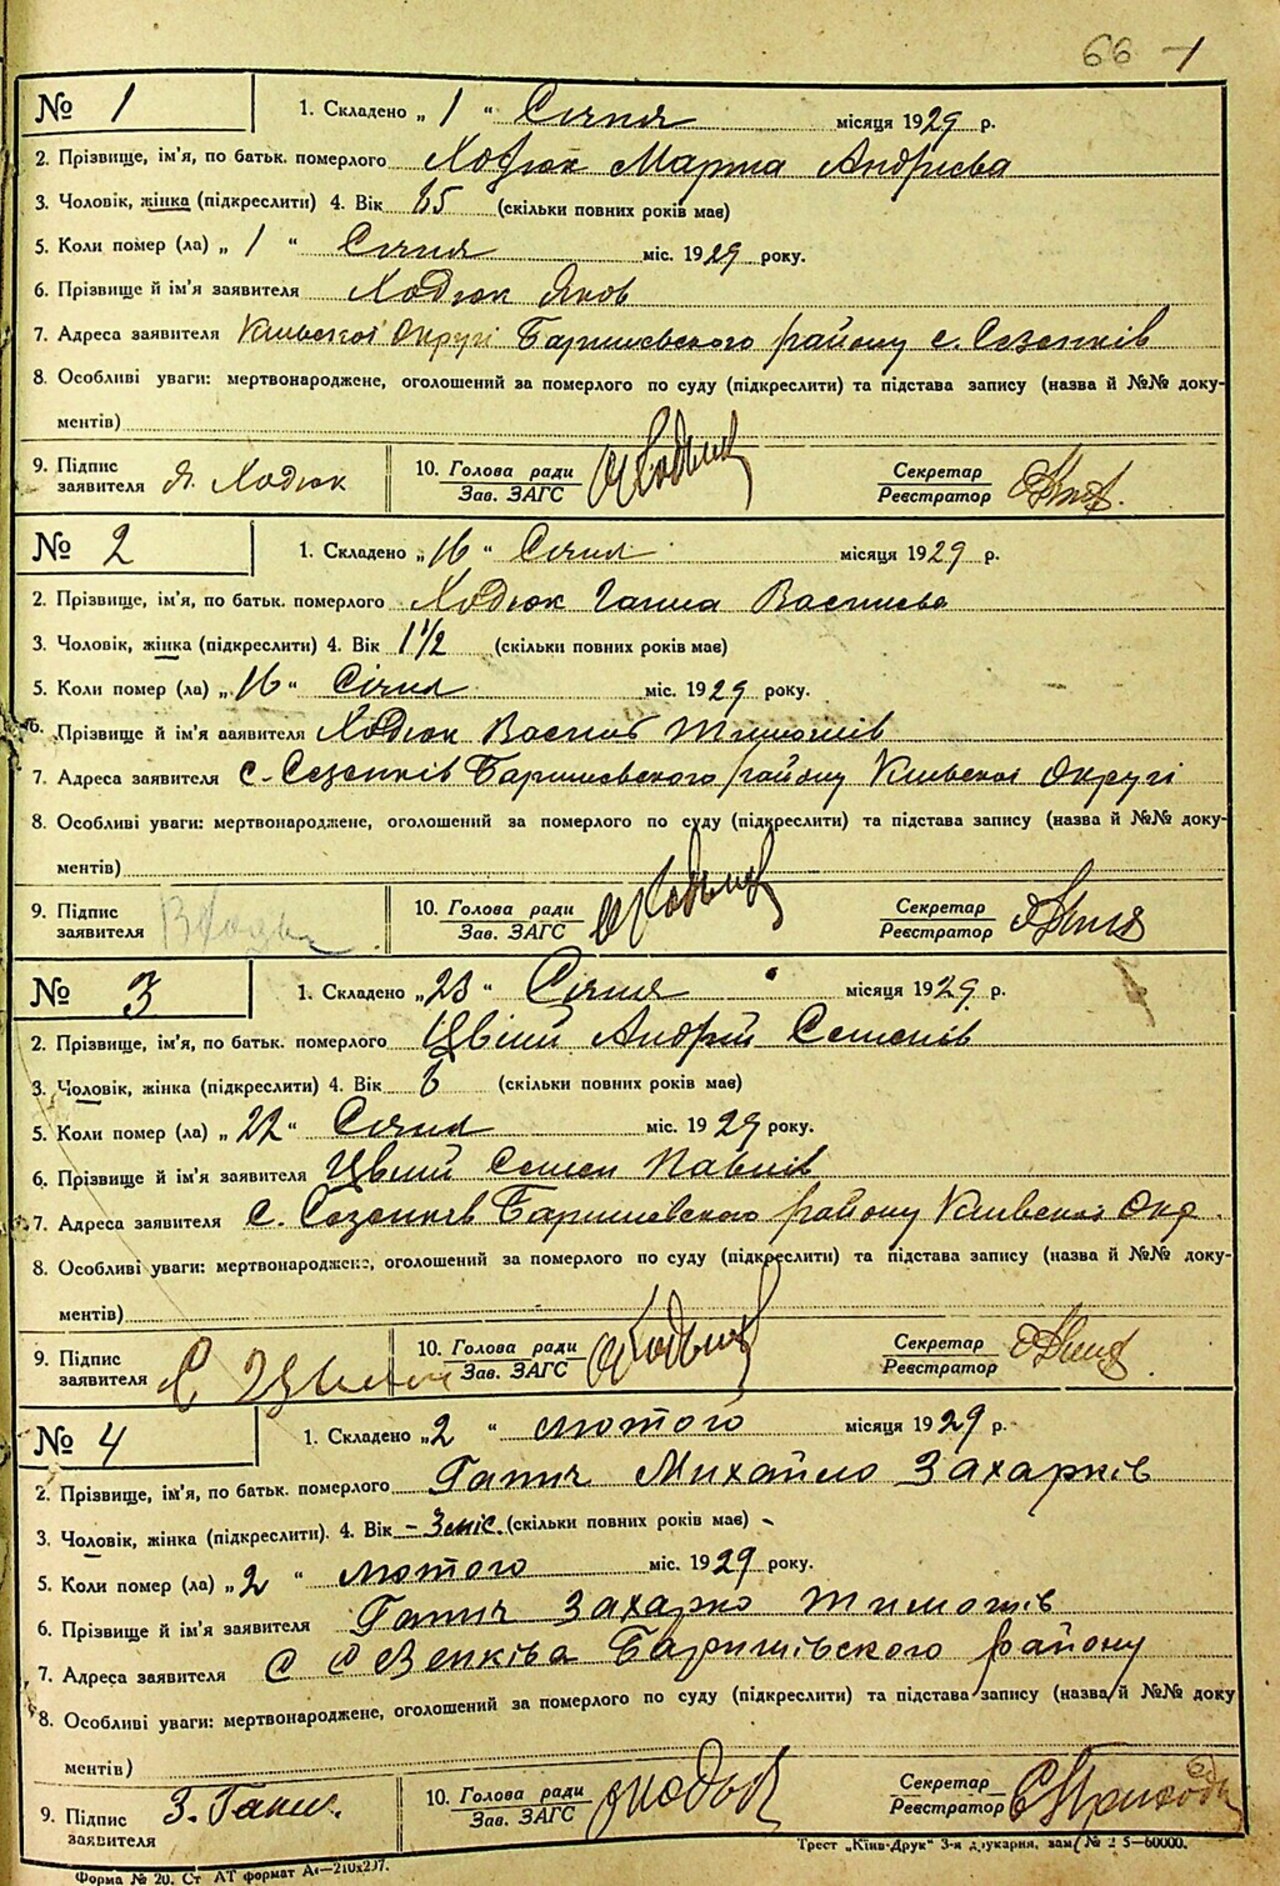 66 - 1
№ 1 1. Складено „ 1 “ Січня місяця 1929 р.
2. Прізвище, ім'я, по батьк. померлого Ходюк Марта Андрієва
3. Чоловік, жінка (підкреслити) 4. Вік 65 (скільки повних років має)
5. Коли помер (ла) „ 1 “ Січня міс. 1929 року.
6. Прізвище й ім'я заявителя Ходюк Яков
7. Адреса заявителя Київської Округі Баришевського району с. Сезенків
8. Особливі уваги: мертвонароджене, оголошений за померлого по суду (підкреслити) та підстава запису (назва й №№ доку-
ментів)
9. Підпис заявителя Я. Ходюк 10. Голова ради Зав. ЗАГС Секретар Реєстратор
№ 2 1. Складено „ 16 “ Січня місяця 1929 р.
2. Прізвище, ім'я, по батьк. померлого Ходюк Ганна Василева
3. Чоловік, жінка (підкреслити) 4. Вік 1 1/2 (скільки повних років має)
5. Коли помер (ла) „ 16 “ Січня міс. 1929 року.
6. Прізвище й ім'я заявителя Ходюк Василь Тимошів
7. Адреса заявителя с. Сезенків Баришевського району Київської Округі
8. Особливі уваги: мертвонароджене, оголошений за померлого по суду (підкреслити) та підстава запису (назва й №№ доку-
ментів)
9. Підпис заявителя 10. Голова ради Зав. ЗАГС Секретар Реєстратор
№ 3 1. Складено „ 23 “ Січня місяця 1929 р.
2. Прізвище, ім'я, по батьк. померлого Цвілий Андрій Семенів
3. Чоловік, жінка (підкреслити) 4. Вік 6 (скільки повних років має)
5. Коли помер (ла) „ 22 “ Січня міс. 1929 року.
6. Прізвище й ім'я заявителя Цвілий Семен Павлів
7. Адреса заявителя с. Сезенків Баришевського району Київської Окр.
8. Особливі уваги: мертвонароджене, оголошений за померлого по суду (підкреслити) та підстава запису (назва й №№ доку-
ментів)
9. Підпис заявителя 10. Голова ради Зав. ЗАГС Секретар Реєстратор
№ 4 1. Складено „ 2 “ лютого місяця 1929 р.
2. Прізвище, ім'я, по батьк. померлого Гапич Михайло Захарків
3. Чоловік, жінка (підкреслити). 4. Вік - 3 міс. (скільки повних років має) -
5. Коли помер (ла) „ 2 “ лютого міс. 1929 року.
6. Прізвище й ім'я заявителя Гапич Захарко Тимошів
7. Адреса заявителя с Сезенківа Баришівського району
8. Особливі уваги: мертвонароджене, оголошений за померлого по суду (підкреслити) та підстава запису (назва й №№ доку
ментів)
9. Підпис заявителя З. Гапич. 10. Голова ради Зав. ЗАГС Секретар Реєстратор
Форма № 20. Ст АТ формат А4—210х297. Трест „Київ-Друк“ 3-я друкарня, зам. № 25—60000.